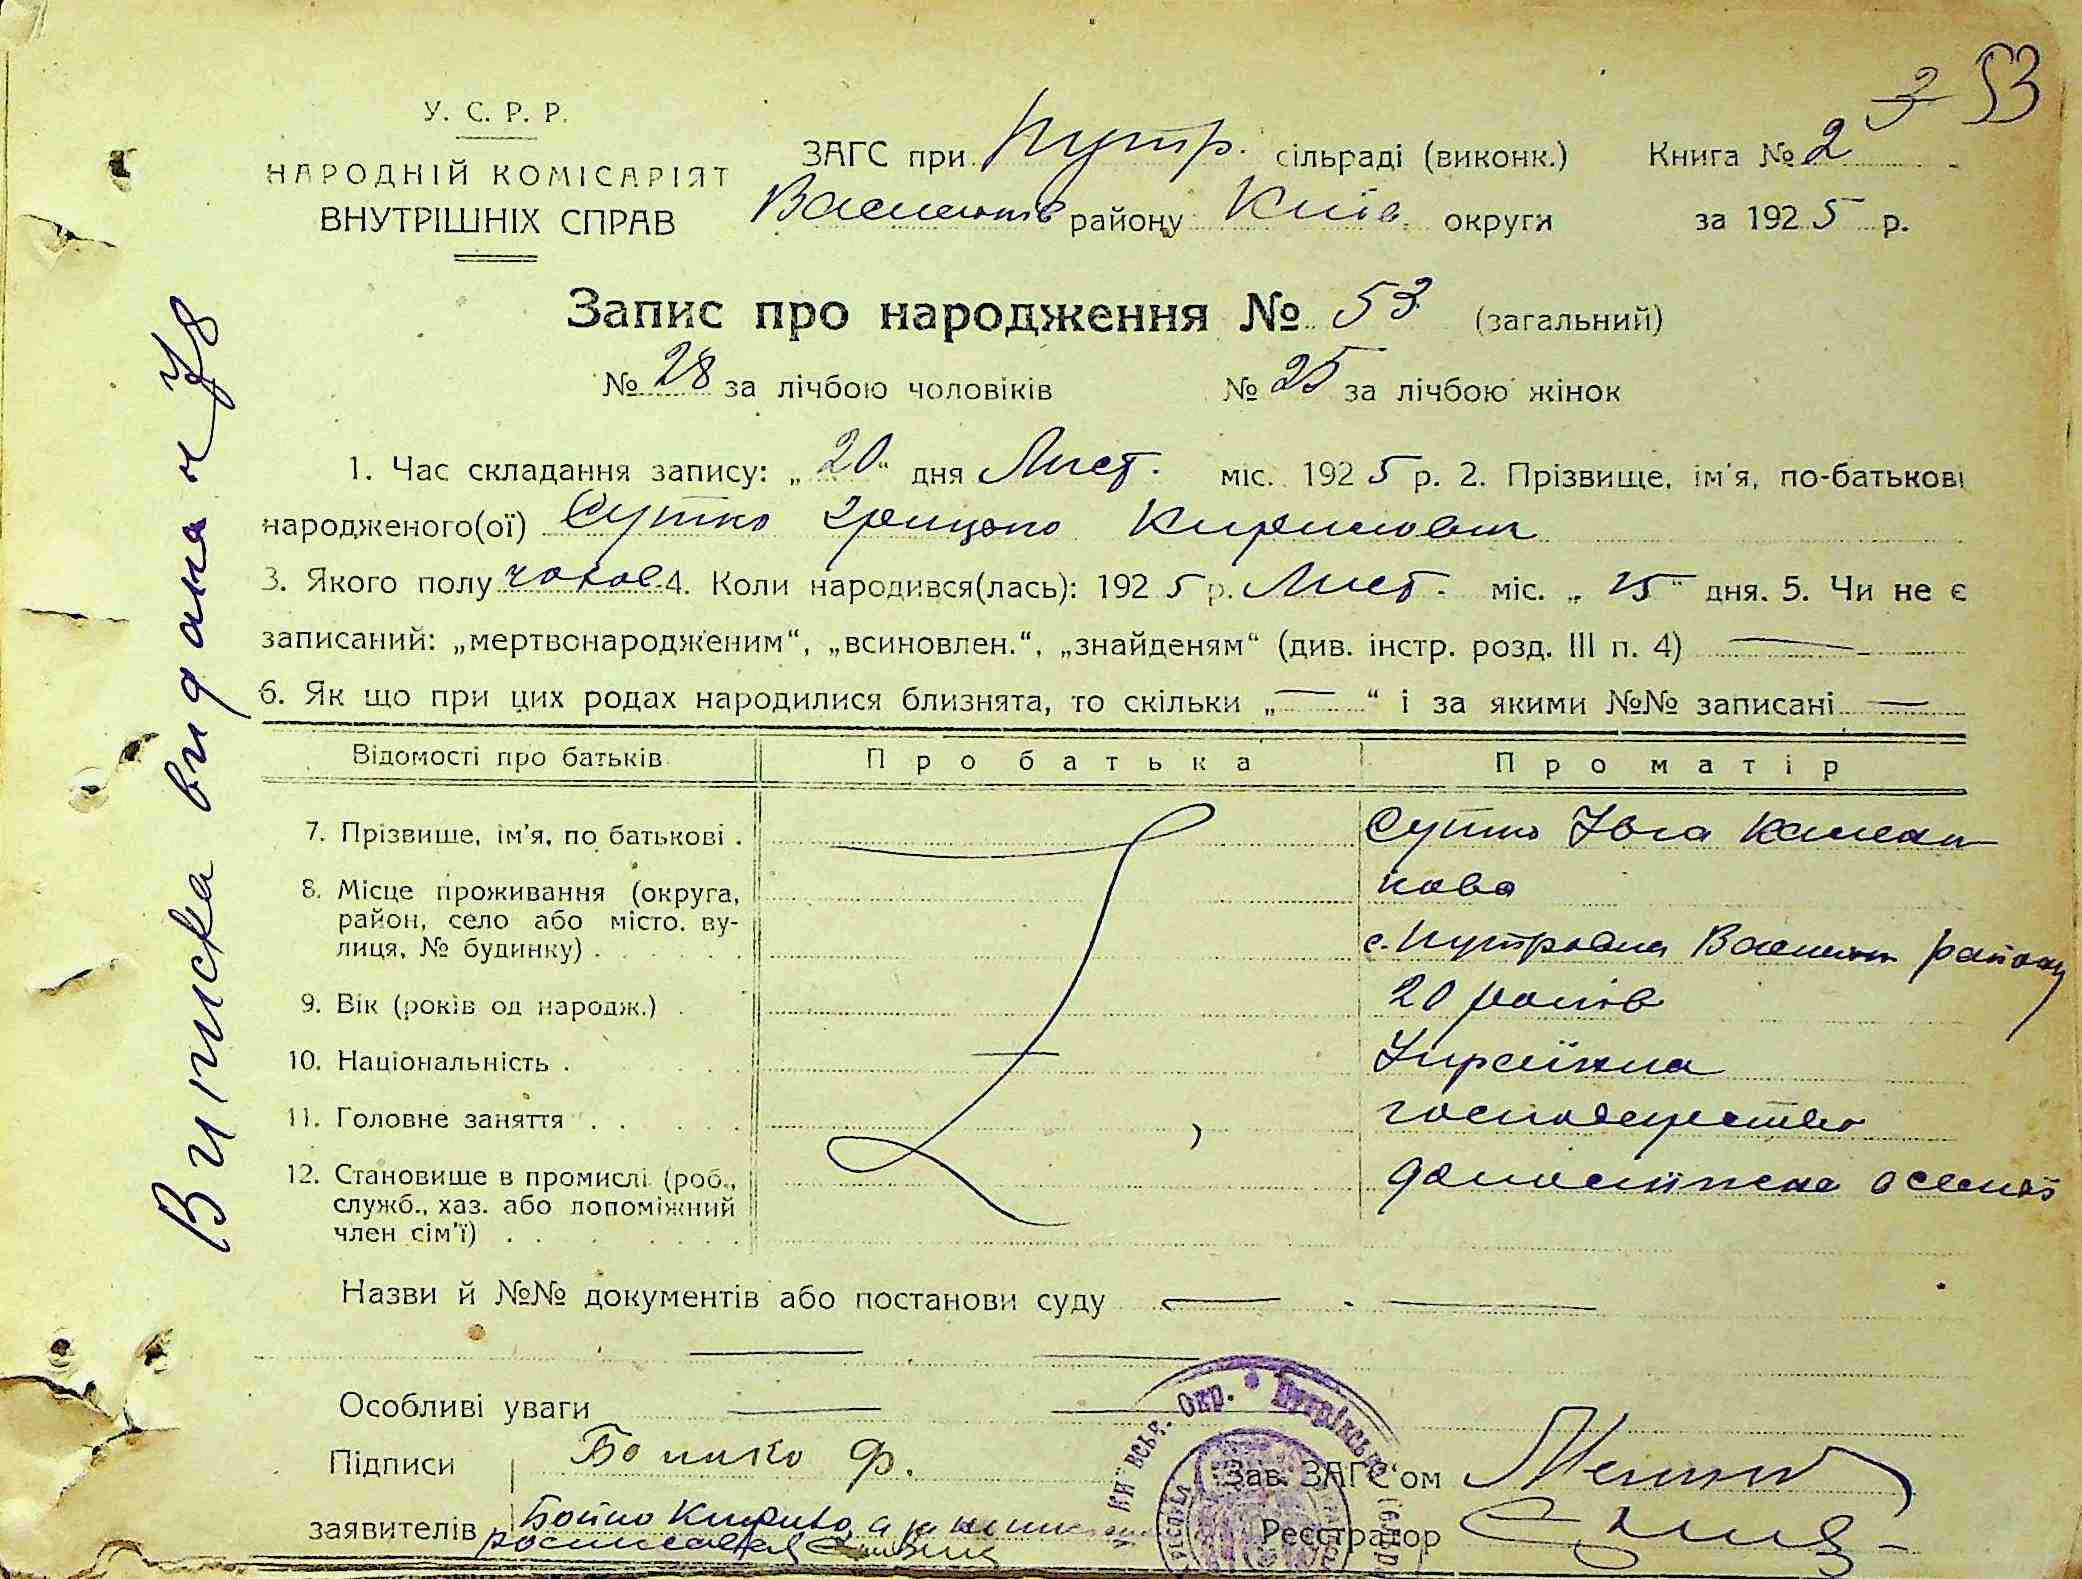 3 53
У. С. Р. Р.
НАРОДНІЙ КОМІСАРІЯТ
ВНУТРІШНІХ СПРАВ
ЗАГС при Путр. сільраді (виконк.) Книга № 2
Васильків району Київ. округи за 1925 р.
Запис про народження № 53 (загальний)
№ 28 за лічбою чоловіків № 25 за лічбою жінок
1. Час складання запису: „20“ дня Лист. міс. 1925 р. 2. Прізвище, ім'я, по-батькові
народженого(ої) Сутко Грицько Кирилович
3. Якого полу чолов. 4. Коли народився(лась): 1925 р. Лист. міс. „15“ дня. 5. Чи не є
записаний: „мертвонародженим“, „всиновлен.“, „знайденям“ (див. інстр. розд. III п. 4) —
6. Як що при цих родах народилися близнята, то скільки „—“ і за якими №№ записані —
Відомості про батьків Про батька Про матір
7. Прізвище, ім'я, по батькові . Сутко Івга
8. Місце проживання (округа,
район, село або місто, ву-
лиця, № будинку) . с. Путровка Васильк району
9. Вік (років од народж.) . 20 років
10. Національність . Українка
11. Головне заняття . .
12. Становище в промислі (роб.,
служб., хаз. або допоміжний
член сім'ї) . .
Назви й №№ документів або постанови суду
Особливі уваги
Підписи Бойко Ф.
заявителів Бойко
Зав. ЗАГС'ом
Реєстратор
Київськ. Окр. • Путрівськ
Виписка видана н 78